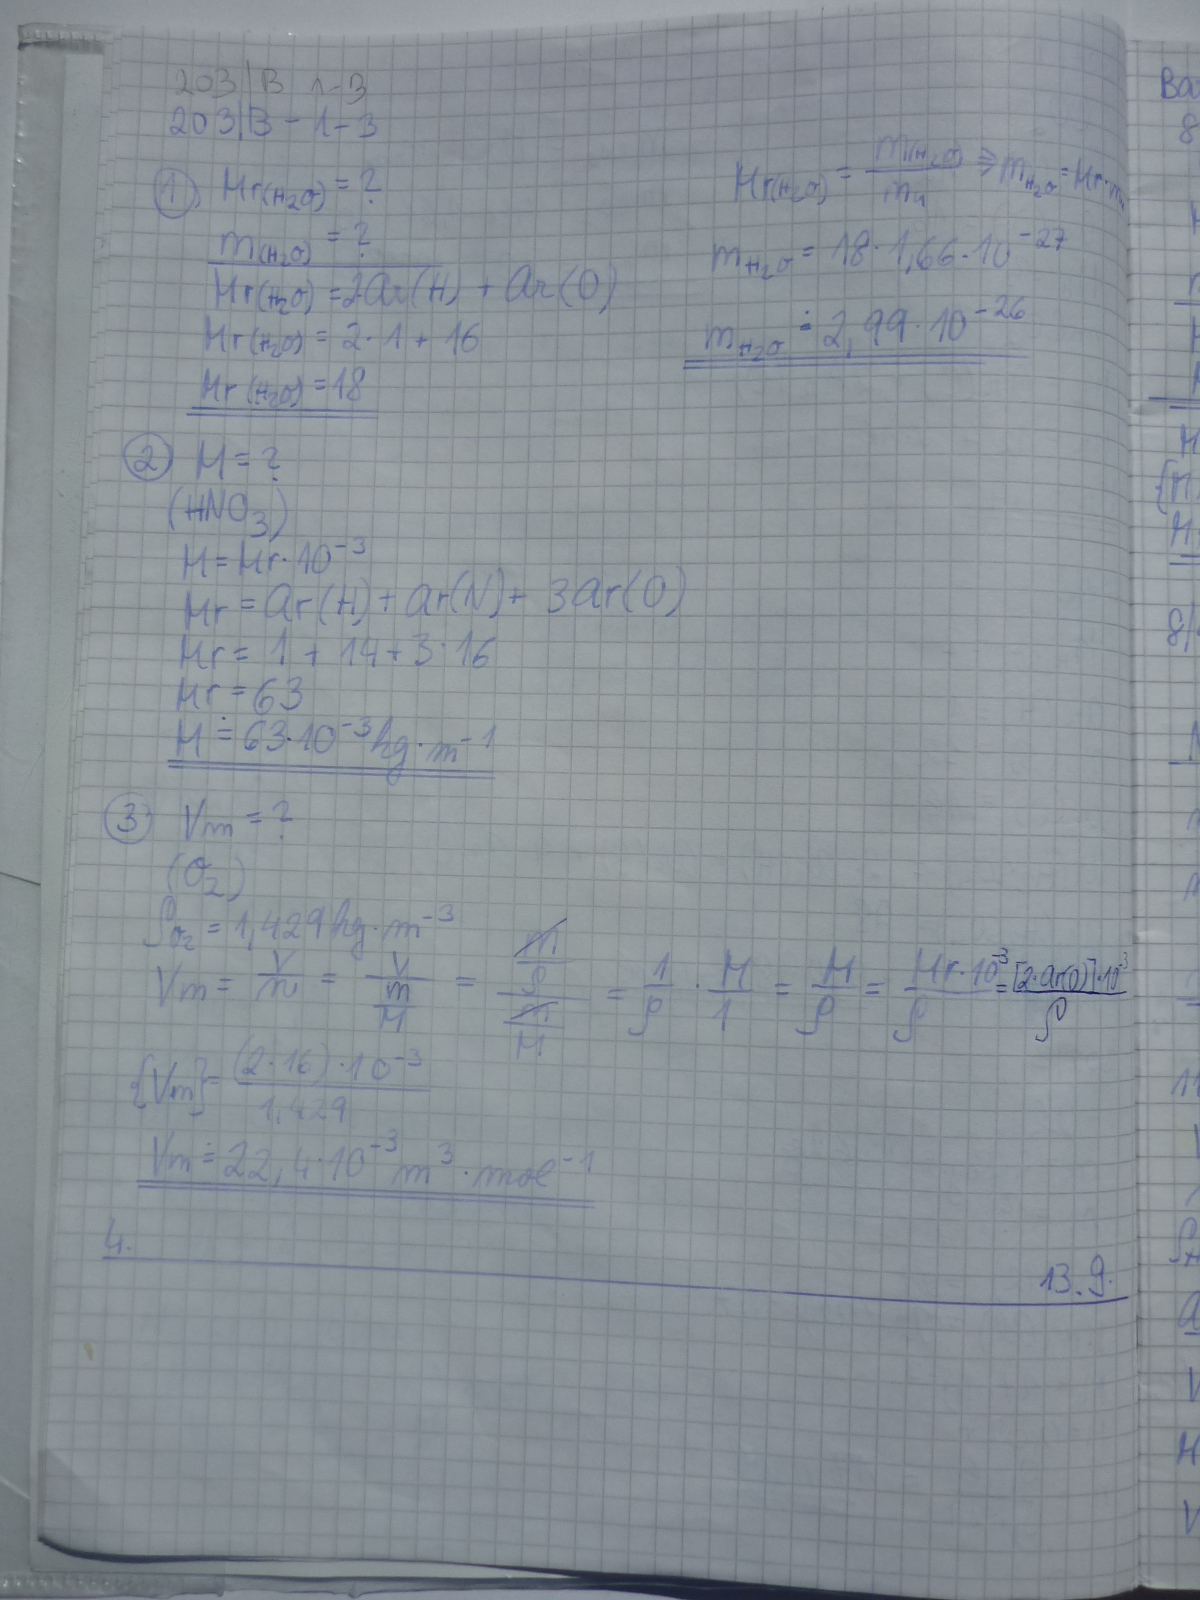 203/B 1-3
203/B - 1-3
1) Mr(H₂O) = ?
m(H₂O) = ?
Mr(H₂O) = 2Ar(H) + Ar(O)
Mr(H₂O) = 2·1 + 16
Mr(H₂O) = 18
Mr(H₂O) = m(H₂O) / mu ⇒ m H₂O = Mr·mu
m H₂O = 18·1,66·10⁻²⁷
m H₂O ≐ 2,99·10⁻²⁶
2) M = ?
(HNO₃)
M = Mr·10⁻³
Mr = Ar(H) + Ar(N) + 3Ar(O)
Mr = 1 + 14 + 3·16
Mr = 63
M ≐ 63·10⁻³ kg·m⁻¹
3) Vm = ?
(O₂)
ρO₂ = 1,429 kg·m⁻³
Vm = V/n = V/(m/M) = (m/ρ)/(m/M) = 1/ρ · M/1 = M/ρ = Mr·10⁻³/ρ = [2·Ar(O)]·10⁻³/ρ
{Vm} = (2·16)·10⁻³ / 1,429
Vm ≐ 22,4·10⁻³ m³·mol⁻¹
4.
13.9.
8
8/